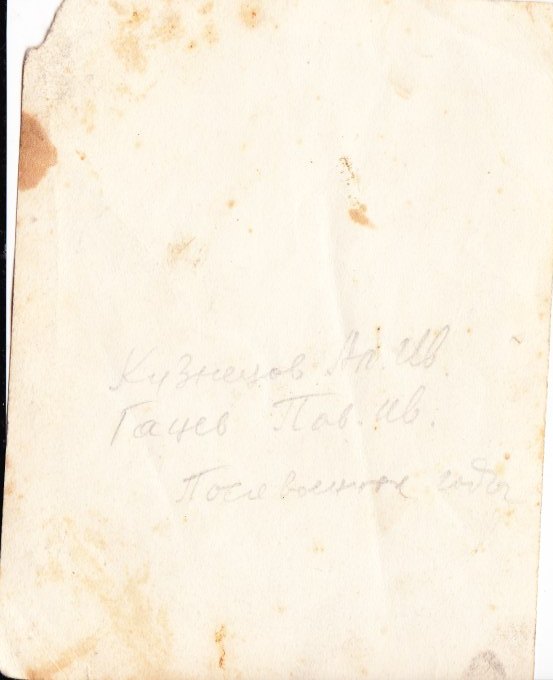 Кузнецов Ап. Ив.
Гацев Пав. ив.
Послевоенные годы